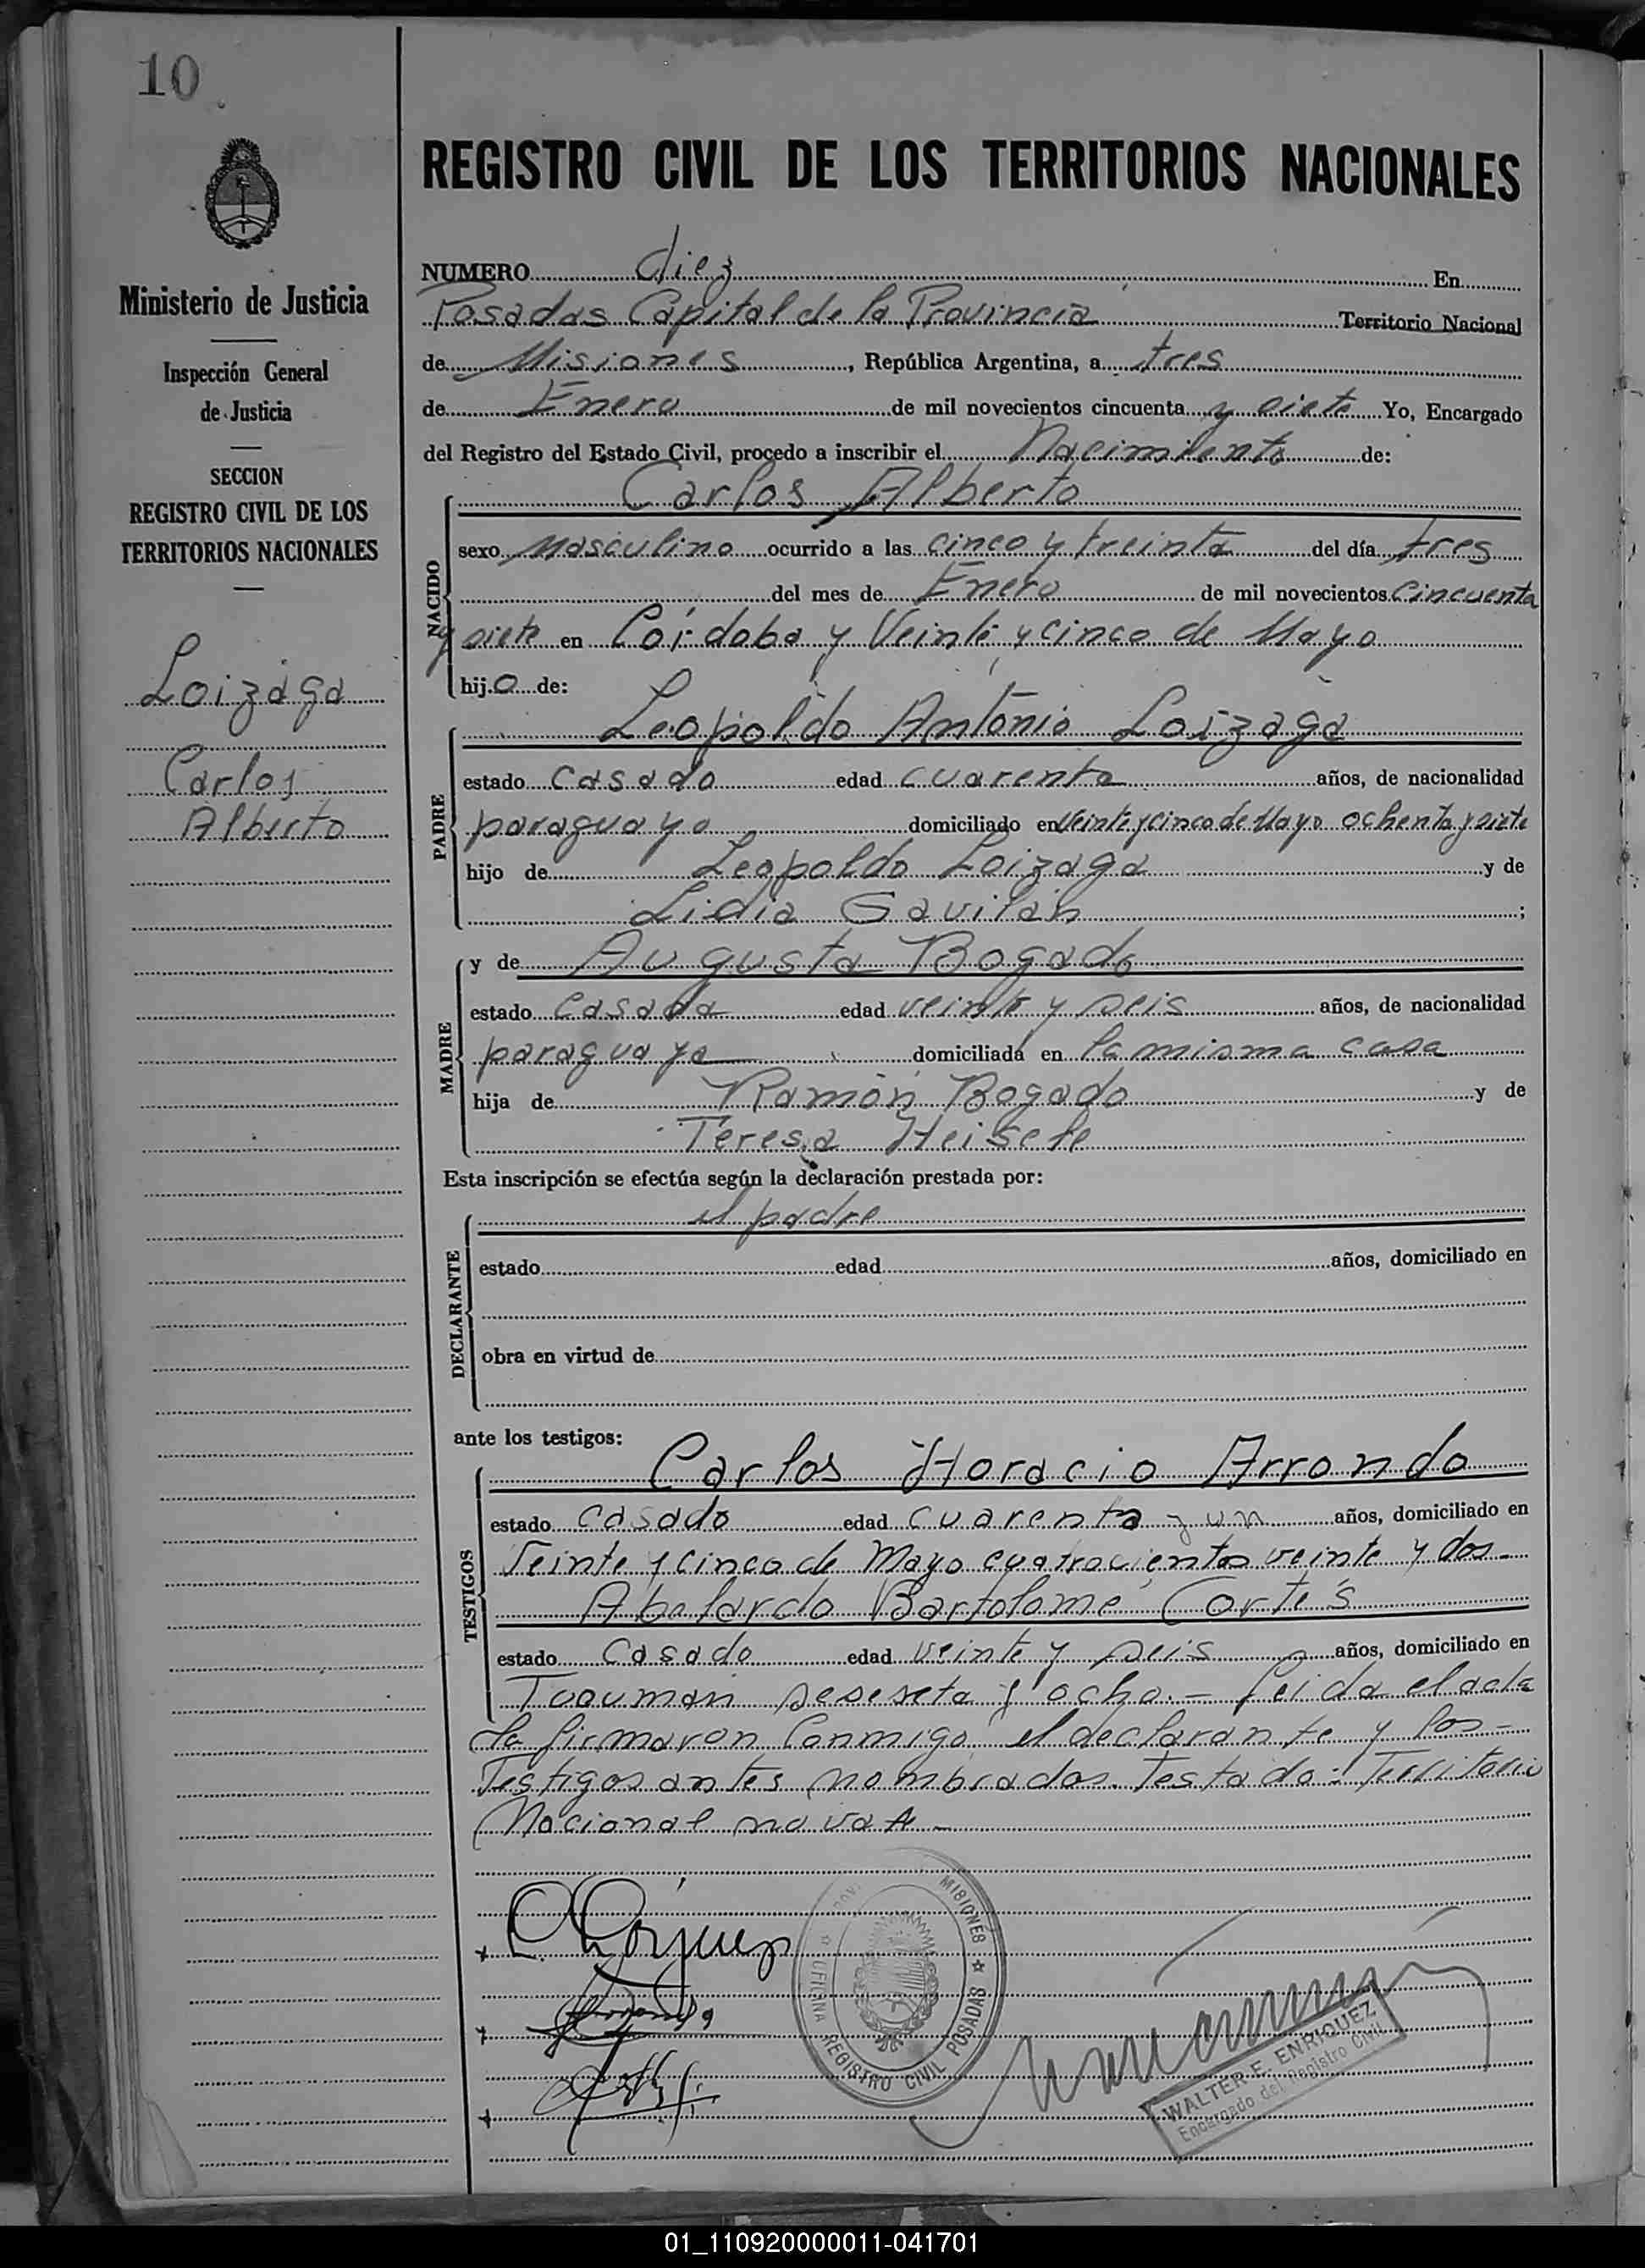 10
REGISTRO CIVIL DE LOS TERRITORIOS NACIONALES
Ministerio de Justicia
Inspección General
de Justicia
SECCION
REGISTRO CIVIL DE LOS
TERRITORIOS NACIONALES
Loizaga
Carlos
Alberto
NUMERO diez En
Posadas Capital de la Provincia Territorio Nacional
de Misiones, República Argentina, a tres
de Enero de mil novecientos cincuenta y siete Yo, Encargado
del Registro del Estado Civil, procedo a inscribir el Nacimiento de:
NACIDO
Carlos Alberto
sexo Masculino ocurrido a las cinco y treinta del día tres
del mes de Enero de mil novecientos Cincuenta
y siete en Córdoba y Veinte y cinco de Mayo
hijo de:
PADRE
Leopoldo Antonio Loizaga
estado Casado edad cuarenta años, de nacionalidad
paraguayo domiciliado en Veinte y cinco de Mayo ochenta y siete
hijo de Leopoldo Loizaga y de
Lidia Gavilán;
MADRE
y de Augusta Bogado
estado Casada edad veinte y seis años, de nacionalidad
paraguaya domiciliada en la misma casa
hija de Ramón Bogado y de
Teresa
Esta inscripción se efectúa según la declaración prestada por:
DECLARANTE
el padre
estado edad años, domiciliado en
obra en virtud de
ante los testigos:
TESTIGOS
Carlos Horacio Arrondo
estado Casado edad cuarenta y un años, domiciliado en
Veinte y cinco de Mayo cuatrocientos veinte y dos-
Abelardo Bartolomé Cortés
estado Casado edad veinte y seis años, domiciliado en
Tucumán sesenta y ocho.- Leida el acta
la firmaron Conmigo el declarante y los-
Testigos antes nombrados. Testado: Territorio
Nacional no vale-
PROV. MISIONES
OFICINA REGISTRO CIVIL POSADAS
WALTER F. ENRIQUEZ
Encargado del Registro Civil
01_110920000011-041701